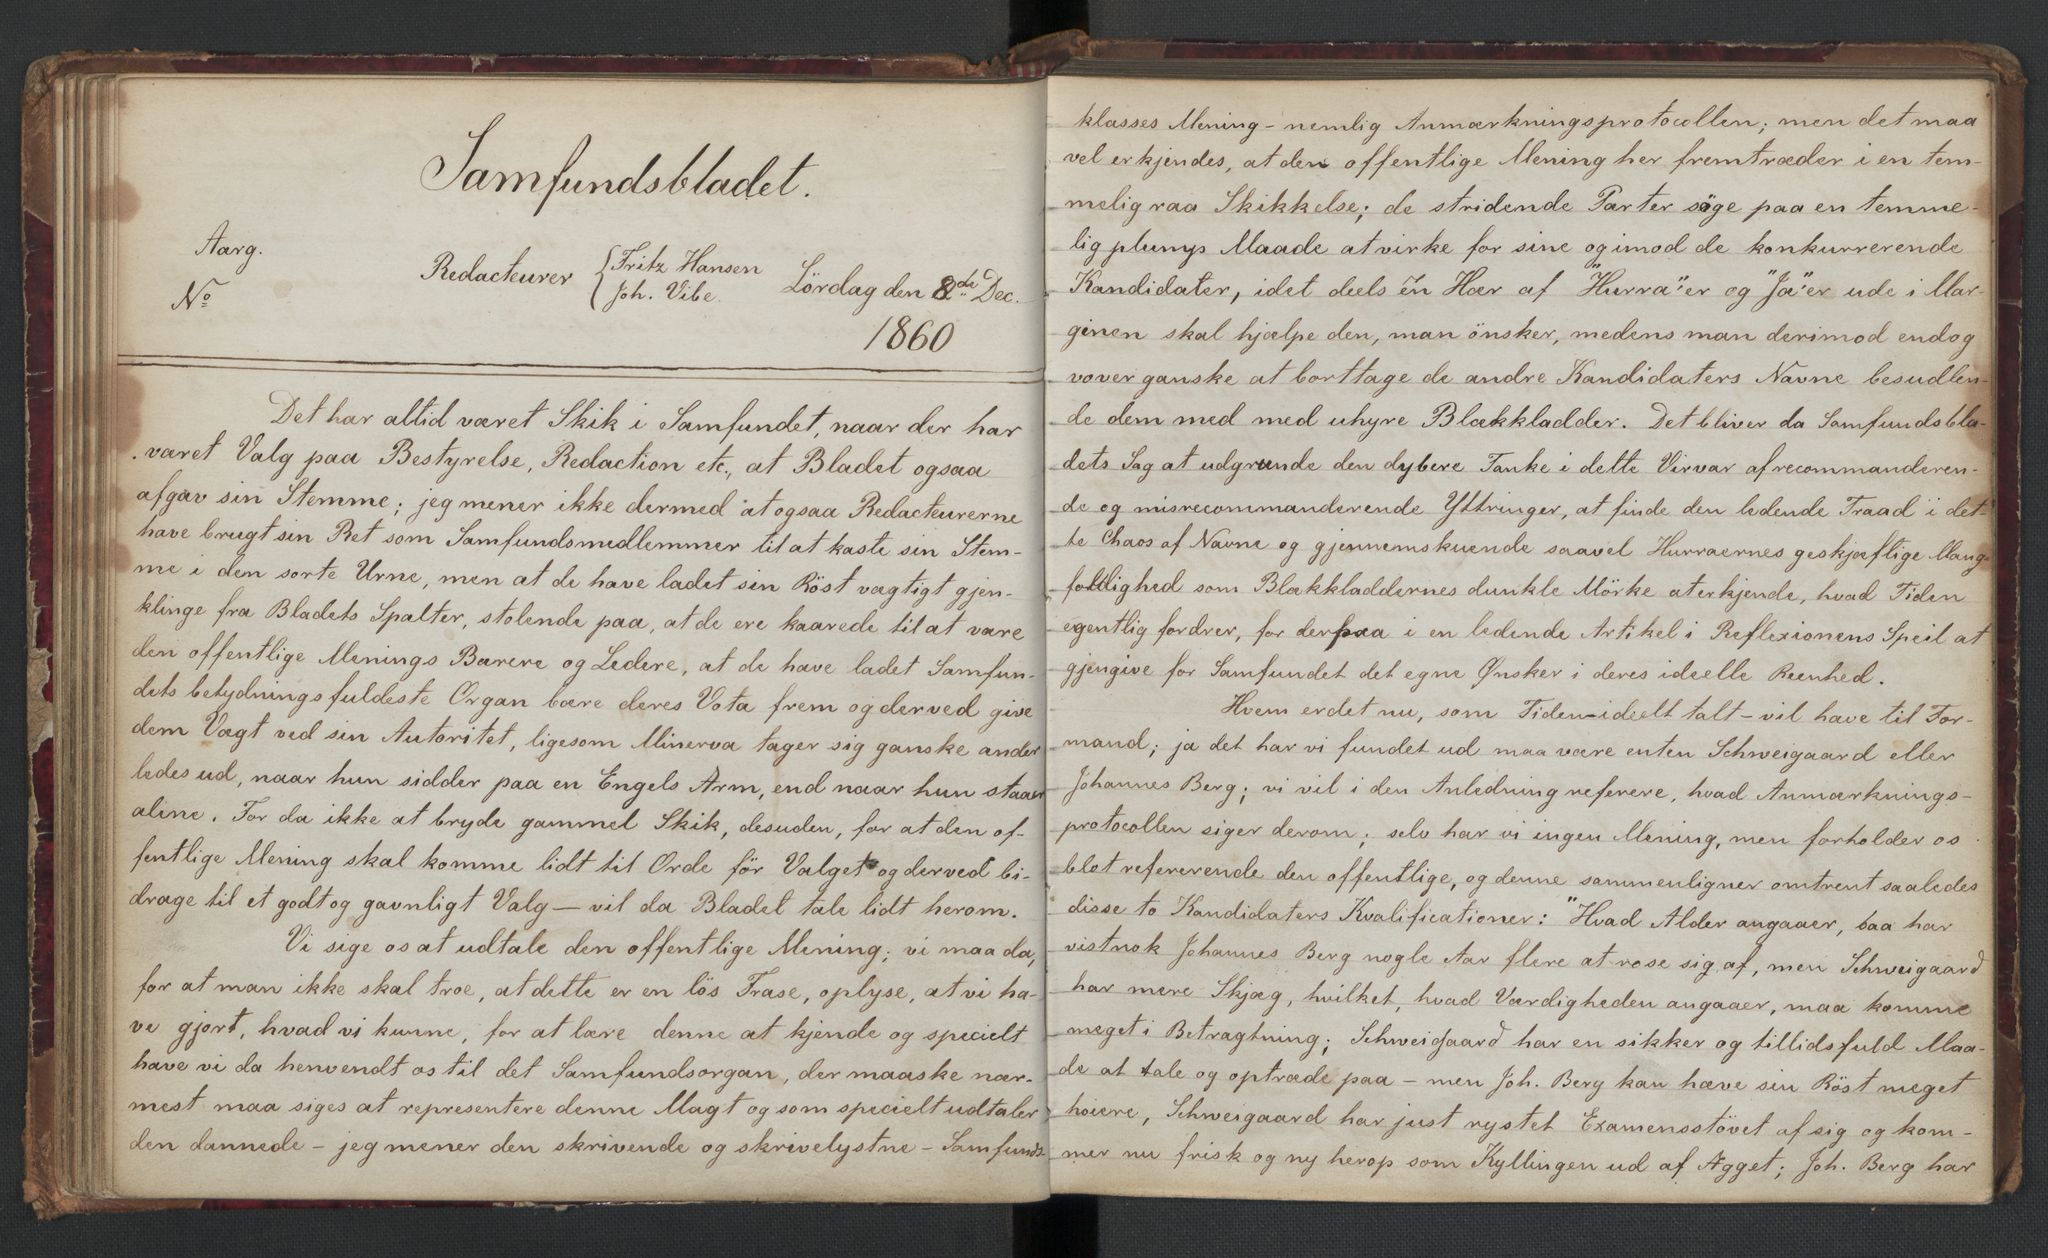 Samfundsbladet.
Aarg.
No
Redacteurer { Fritz Hansen
Joh. Vibe.
Lördag den 8de Dec.
1860
Det har altid været Skik i Samfundet, naar der har
været Valg paa Bestyrelse, Redaction etc., at Bladet ogsaa
afgav sin Stemme; jeg mener ikke dermed at ogsaa Redacteurerne
have brugt sin Ret som Samfundsmedlemmer til at kaste sin Stem-
me i den sorte Urne, men at de have ladet sin Röst vægtigt gjen-
klinge fra Bladets Spalter, stolende paa, at de ere kaarede til at være
den offentlige Menings Bærere og Ledere, at de have ladet Samfun-
dets betydningsfuldeste Organ bære deres Vota frem og derved give
dem Vægt ved sin Autoritet, ligesom Minerva tager sig ganske ander
ledes ud, naar hun sidder paa en Engels Arm, end naar hun staaer
alene. For da ikke at bryde gammel Skik, desuden, for at den of-
fentlige Mening skal komme lidt til Orde för Valget og derved bi-
drage til et godt og gavnligt Valg — vil da Bladet tale lidt herom.
Vi sige os at udtale den offentlige Mening; vi maa da,
for at man ikke skal troe, at dette er en lös Frase, oplyse, at vi ha-
ve gjort, hvad vi kunne, for at lære denne at kjende og specielt
have vi da henvendt os til det Samfundsorgan, der maaske nær-
mest maa siges at representere denne Magt og som specielt udtaler
den dannede – jeg mener den skrivende og skrivelystne – Samfunds-
klasses Mening – nemlig Anmærkningsprotocollen; men det maa
vel erkjendes, at den offentlige Mening her fremtræder i en tem-
melig raa Skikkelse; de stridende Parter söge paa en temme-
lig plump Maade at virke for sine og imod de konkurrerende
Kandidater, idet deels en Hær af "Hurra"er og "Ja"er ude i Mar-
ginen skal hjælpe den, man önsker, medens man derimod endog
vover ganske at borttage de andre Kandidaters Navne besudlen-
de dem med med uhyre Blækkladder. Det bliver da Samfundsbla-
dets Sag at udgrunde den dybere Tanke i dette Virvar af recommanderen-
de og misrecommanderende Yttringer, at finde den ledende Traad i det-
te Chaos af Navne og gjennemskuende saavel Hurraernes geskjæftige Mang-
foldighed som Blækkladdernes dunkle Mörke at erkjende, hvad Tiden
egentlig fordrer, for derpaa i en ledende Artikel i Reflexionens Speil at
gjengive for Samfundet det egne Ønsker i deres ideelle Reenhed.
Hvem er det nu, som Tiden – ideelt talt – vil have til For-
mand; ja det har vi fundet ud maa være enten Schweigaard eller
Johannes Berg; vi vil i den Anledning referere, hvad Anmærknings-
protocollen siger derom; selv har vi ingen Mening, men forholder os
blot refererende den offentlige, og denne sammenligner omtrent saaledes
disse to Kandidaters Kvalificationer: "Hvad Alder angaaer, saa har
vistnok Johannes Berg nogle Aar flere at rose sig af, men Schweigaard
har mere Skjæg, hvilket, hvad Værdigheden angaaer, maa komme
meget i Betragtning; Schweigaard har en sikker og tillidsfuld Maa-
de at tale og optræde paa – men Joh. Berg kan hæve sin Röst meget
höiere, Schweigaard har just rystet Examensstövet af sig og kom-
mer nu frisk og ny herop som Kyllingen ud af Ægget; Joh. Berg har